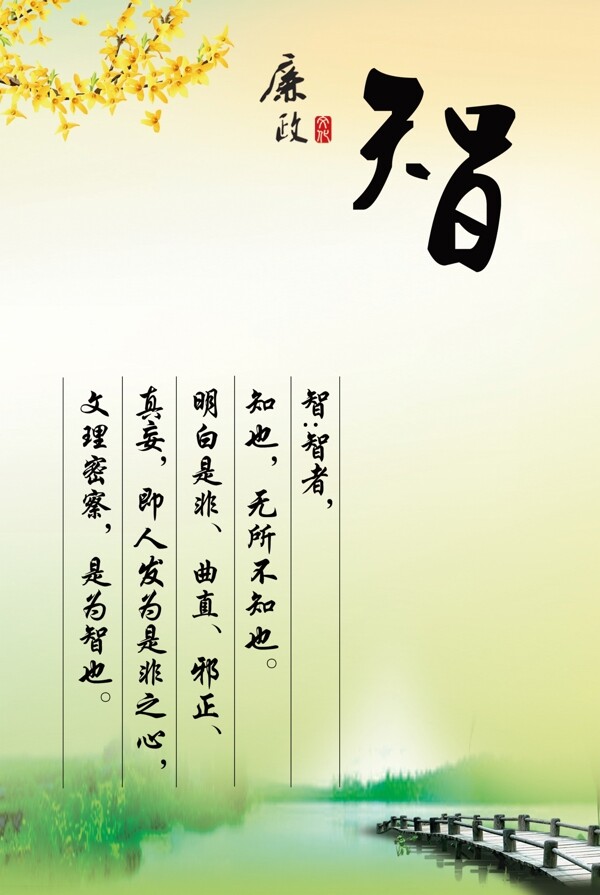 智
廉政
文化
智:智者，
知也，无所不知也。
明白是非、曲直、邪正、
真妄，即人发为是非之心，
文理密察，是为智也。